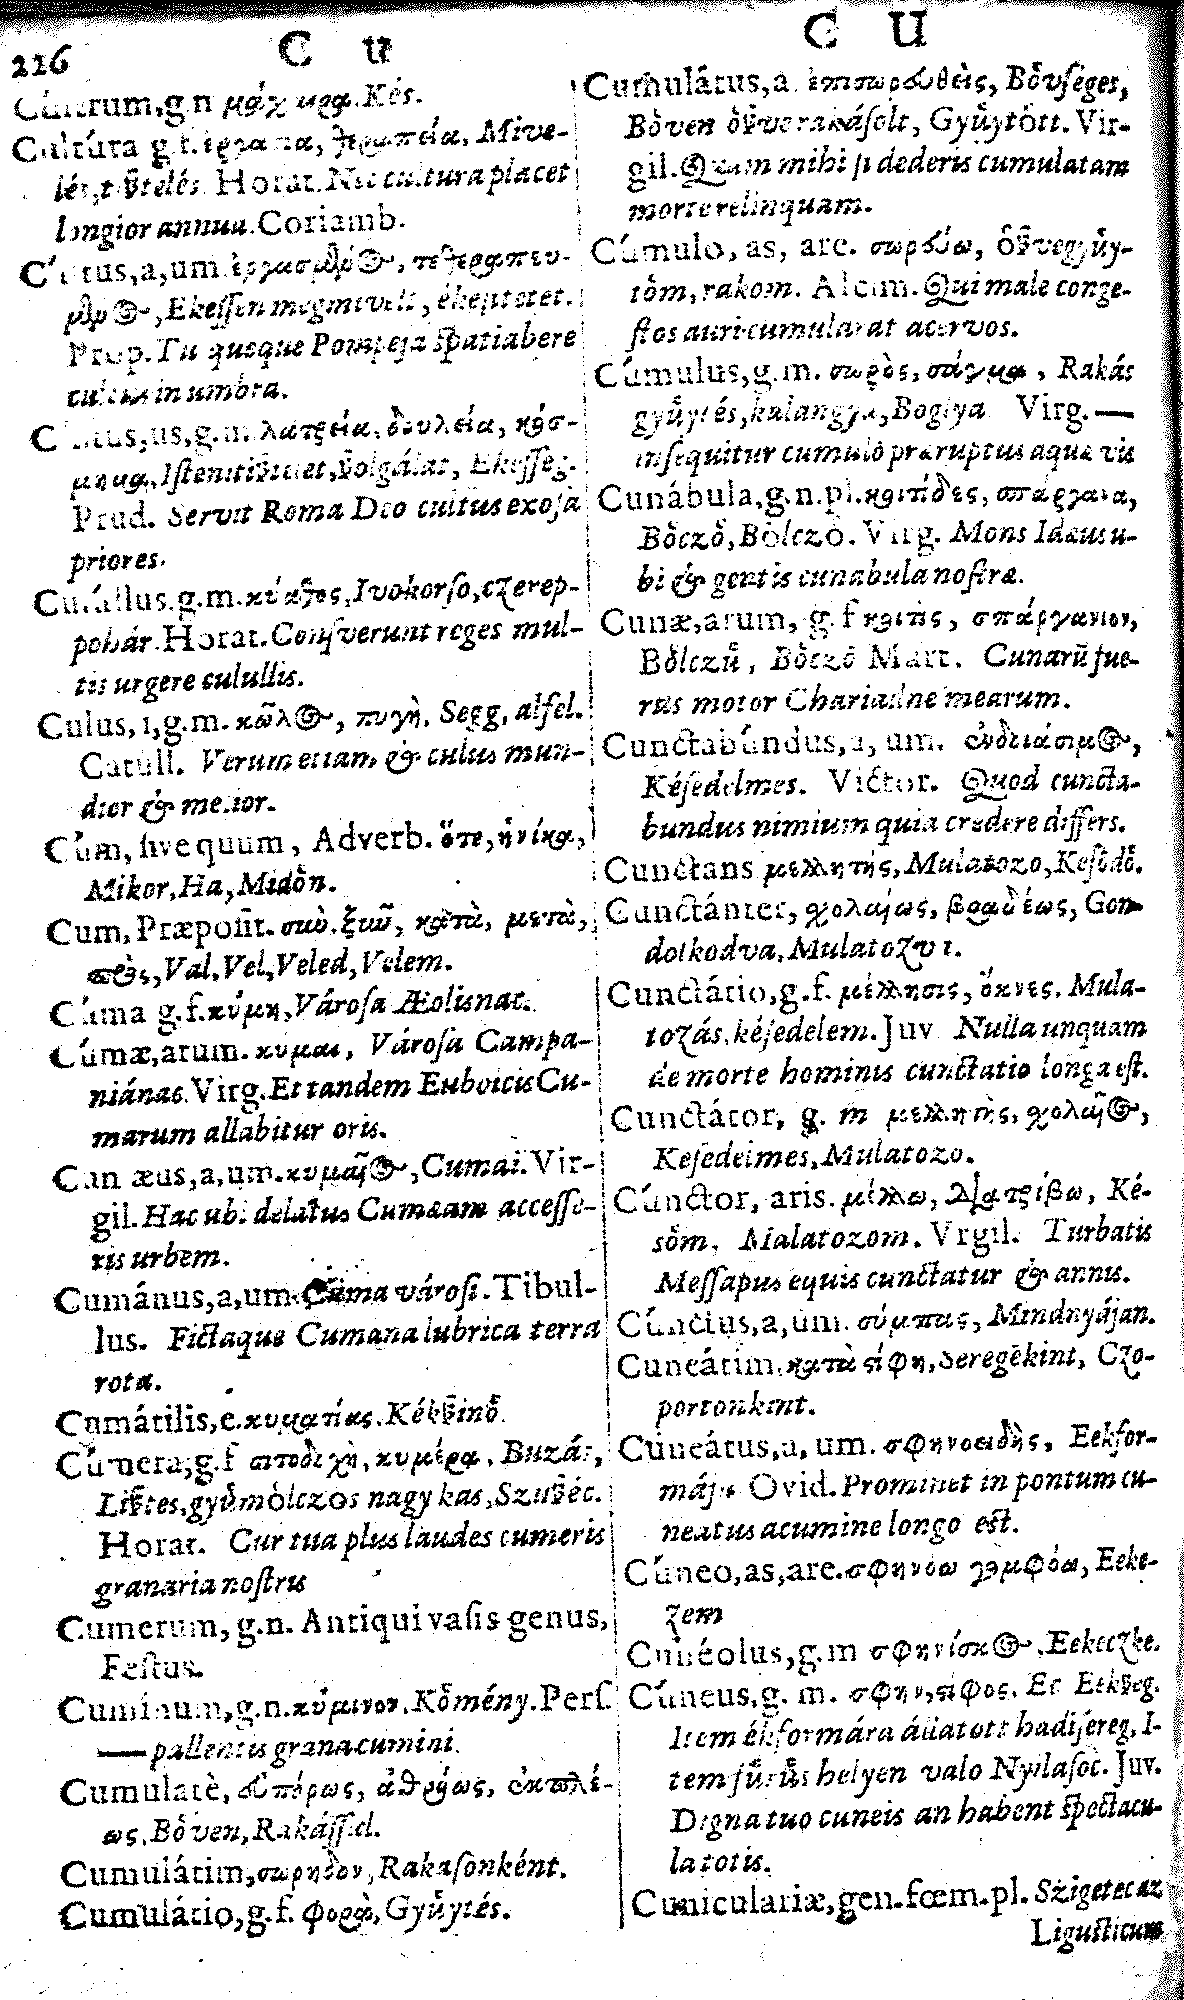 226 C U
Cultrum,g.n μάχαιρα.Kés.
Cultúra g.f. θεραπεία, Mive-
lés, Horat.Nec cultura placet
longior annua.Coriamb.
Cultus,a,um
Ekessen megmivelt, ékeſitetet.
Prop.Tu quoque Pompeja spatiabere
cultus in umbra.
Cultus,us,g.m. λατρεία, δουλεία, κόσ-
μημα, Ekesség.
Prud. Servit Roma Deo cultus exosa
priores.
Culullus.g.m. Ivokorso,czerep-
pohár.Horat. reges mul-
tis urgere culullis.
Culus,i,g.m. κῶλος, πυγὴ. Segg, alfel.
Catull. Verum etiam & culus mun-
dior & melior.
Cùm, sive quum, Adverb. ὅτε, ἡνίκα,
Mikor,Ha,Midőn.
Cum, Præposit. σὺν.ξὺν, κατὰ, μετὰ,
πρὸς,Val.Vel,Veled,Velem.
Cúma g.f.κύμη,Városa Æolisnac.
Cúmæ,arum. κυμαι, Városa Campa-
niánac.Virg.Et tandem Euboicis Cu-
marum allabitur oris.
Cumæus,a,um.κυμαῖος,Cumai.Vir-
gil.Hac ubi delatus Cumæam accesse-
ris urbem.
Cumânus,a,um.Cuma városi.Tibul-
lus. Fictaque Cumana lubrica terra
rota.
Cumátilis,e.κυματίας.Kékszinő.
Cúmera,g.f σιτοδόχη, κυμέρα,
Lisztes,gyümölczos nagy kas,Szuszéc.
Horat. Cur tua plus laudes cumeris
granaria nostris
Cumerum, g.n. Antiqui vasis genus,
Festus.
Cumínum,g.n.κύμινον.Kömény.Pers.
— pallentis grana cumini.
Cumulatè,
Böven,
Cumulátim,σωρηδὸν,Rakasonként.
Cumulátio,g.f. φορὰ,Gyűytés.
C U
Cumulátus,a. Bövséges,
Böven Gyűytött. Vir-
gil.Quam mihi si dederis cumulatam
morte relinquam.
Cúmulo, as, are. σωρεύω,
töm,rakom. Alcim.Qui male conge-
stos auri cumularat acervos.
Cúmulus,g.m. σωρὸς, σάγμα, Rakás
gyűytés,kalangya,Boglya Virg.—
insequitur cumulo præruptus aquæ vis
Cunábula,g.n.pl.κοιτίδες, σπάργανα,
Böczö,Bölczö. Virg. Mons Idæus u-
bi & gentis cunabula nostræ.
Cunæ,arum, g.f κοιτὶς, σπάργανον,
Bölczű, Böczö Mart. Cunarũ fue-
ras motor Charideme mearum.
Cunctabúndus,a, um. ἐνδοιάσιμος,
Késedelmes. Victor. Quod cuncta-
bundus nimium quia credere differs.
Cunctans μελλητής,Mulatozo,Kesödö.
Cunctánter, σχολαίως, βραδέως, Gon-
dolkodva,Mulatozva.
Cunctátio,g.f. μέλλησις, ὄκνος. Mula-
tozás,késedelem.Juv Nulla unquam
de morte hominis cunctatio longa est.
Cunctátor, g. m μελλητὴς, σχολαῖος,
Kesedelmes,Mulatozo.
Cúnctor, aris. μέλλω, διατρίβω, Ké-
söm, Malatozom. Virgil. Turbatis
Messapus equis cunctatur & annis.
Cúnctus,a,um. σύμπας, Mindnyájan.
Cuneátim. Seregékint, Czo-
portonkint.
Cuneátus,a, um. σφηνοειδὴς, Eekfor-
máju Ovid.Prominet in pontum cu-
neatus acumine longo est.
Cúneo,as,are.σφηνόω γομφόω, Eeke-
zem
Cunéolus,g.m σφηνίσκος.Eekeczke.
Cúneus,g. m. σφην, Ec Eekszeg.
Item ékformára állatott hadisereg, I-
tem helyen valo Nyilasoc.Juv.
Digna tuo cuneis an habent spectacu-
la totis.
Cuniculariæ,gen.fœm.pl. Szigetec az
Ligusticum